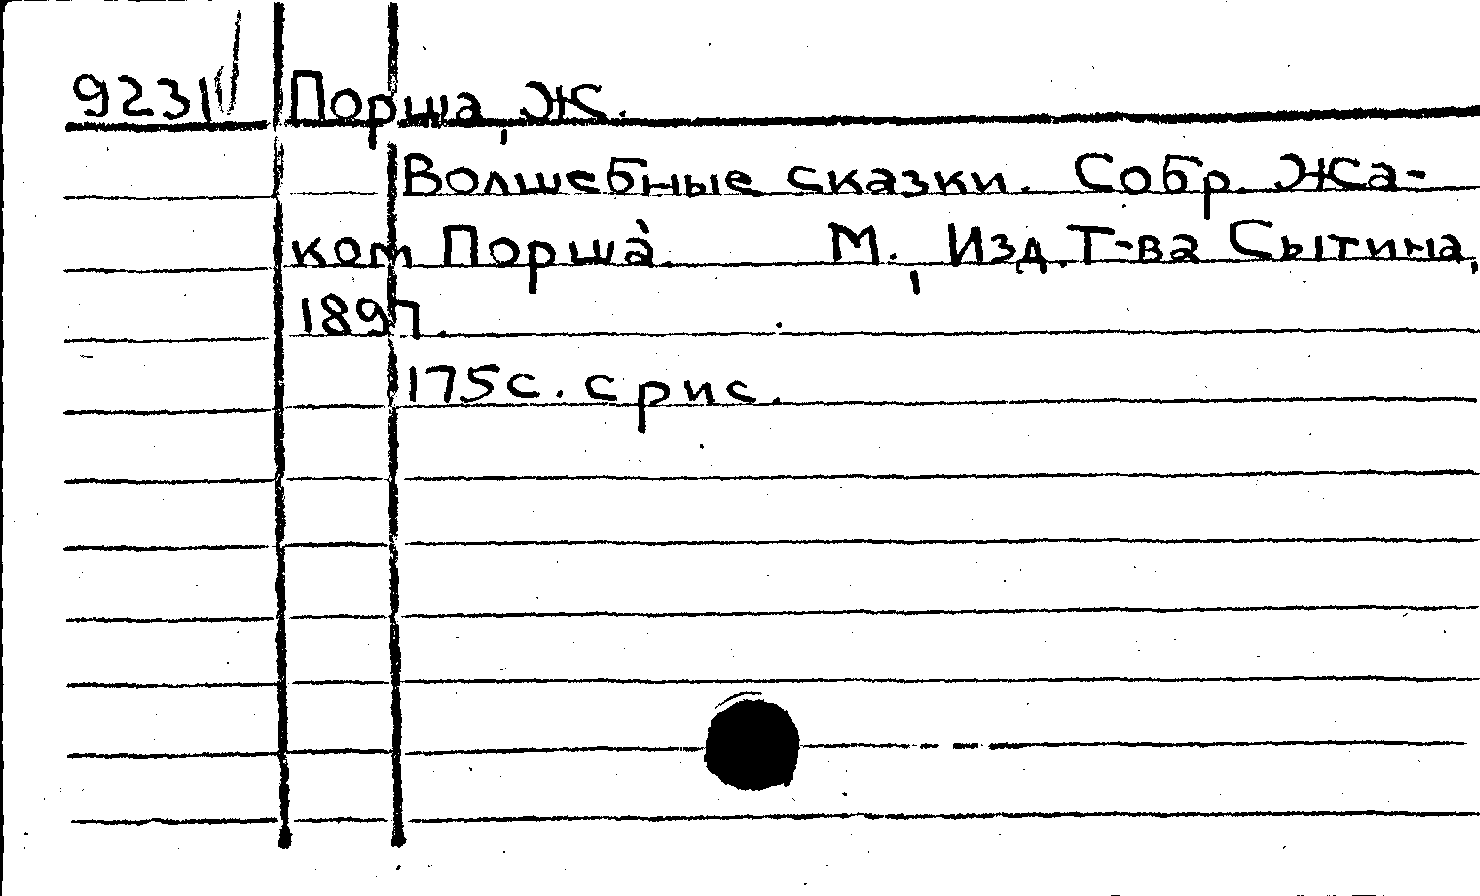 9231 Порша, Ж.
Волшебные сказки. Собр. Жа-
ком Порша̀. М., Изд. Т-ва Сытина,
1897.
175 с. с рис.